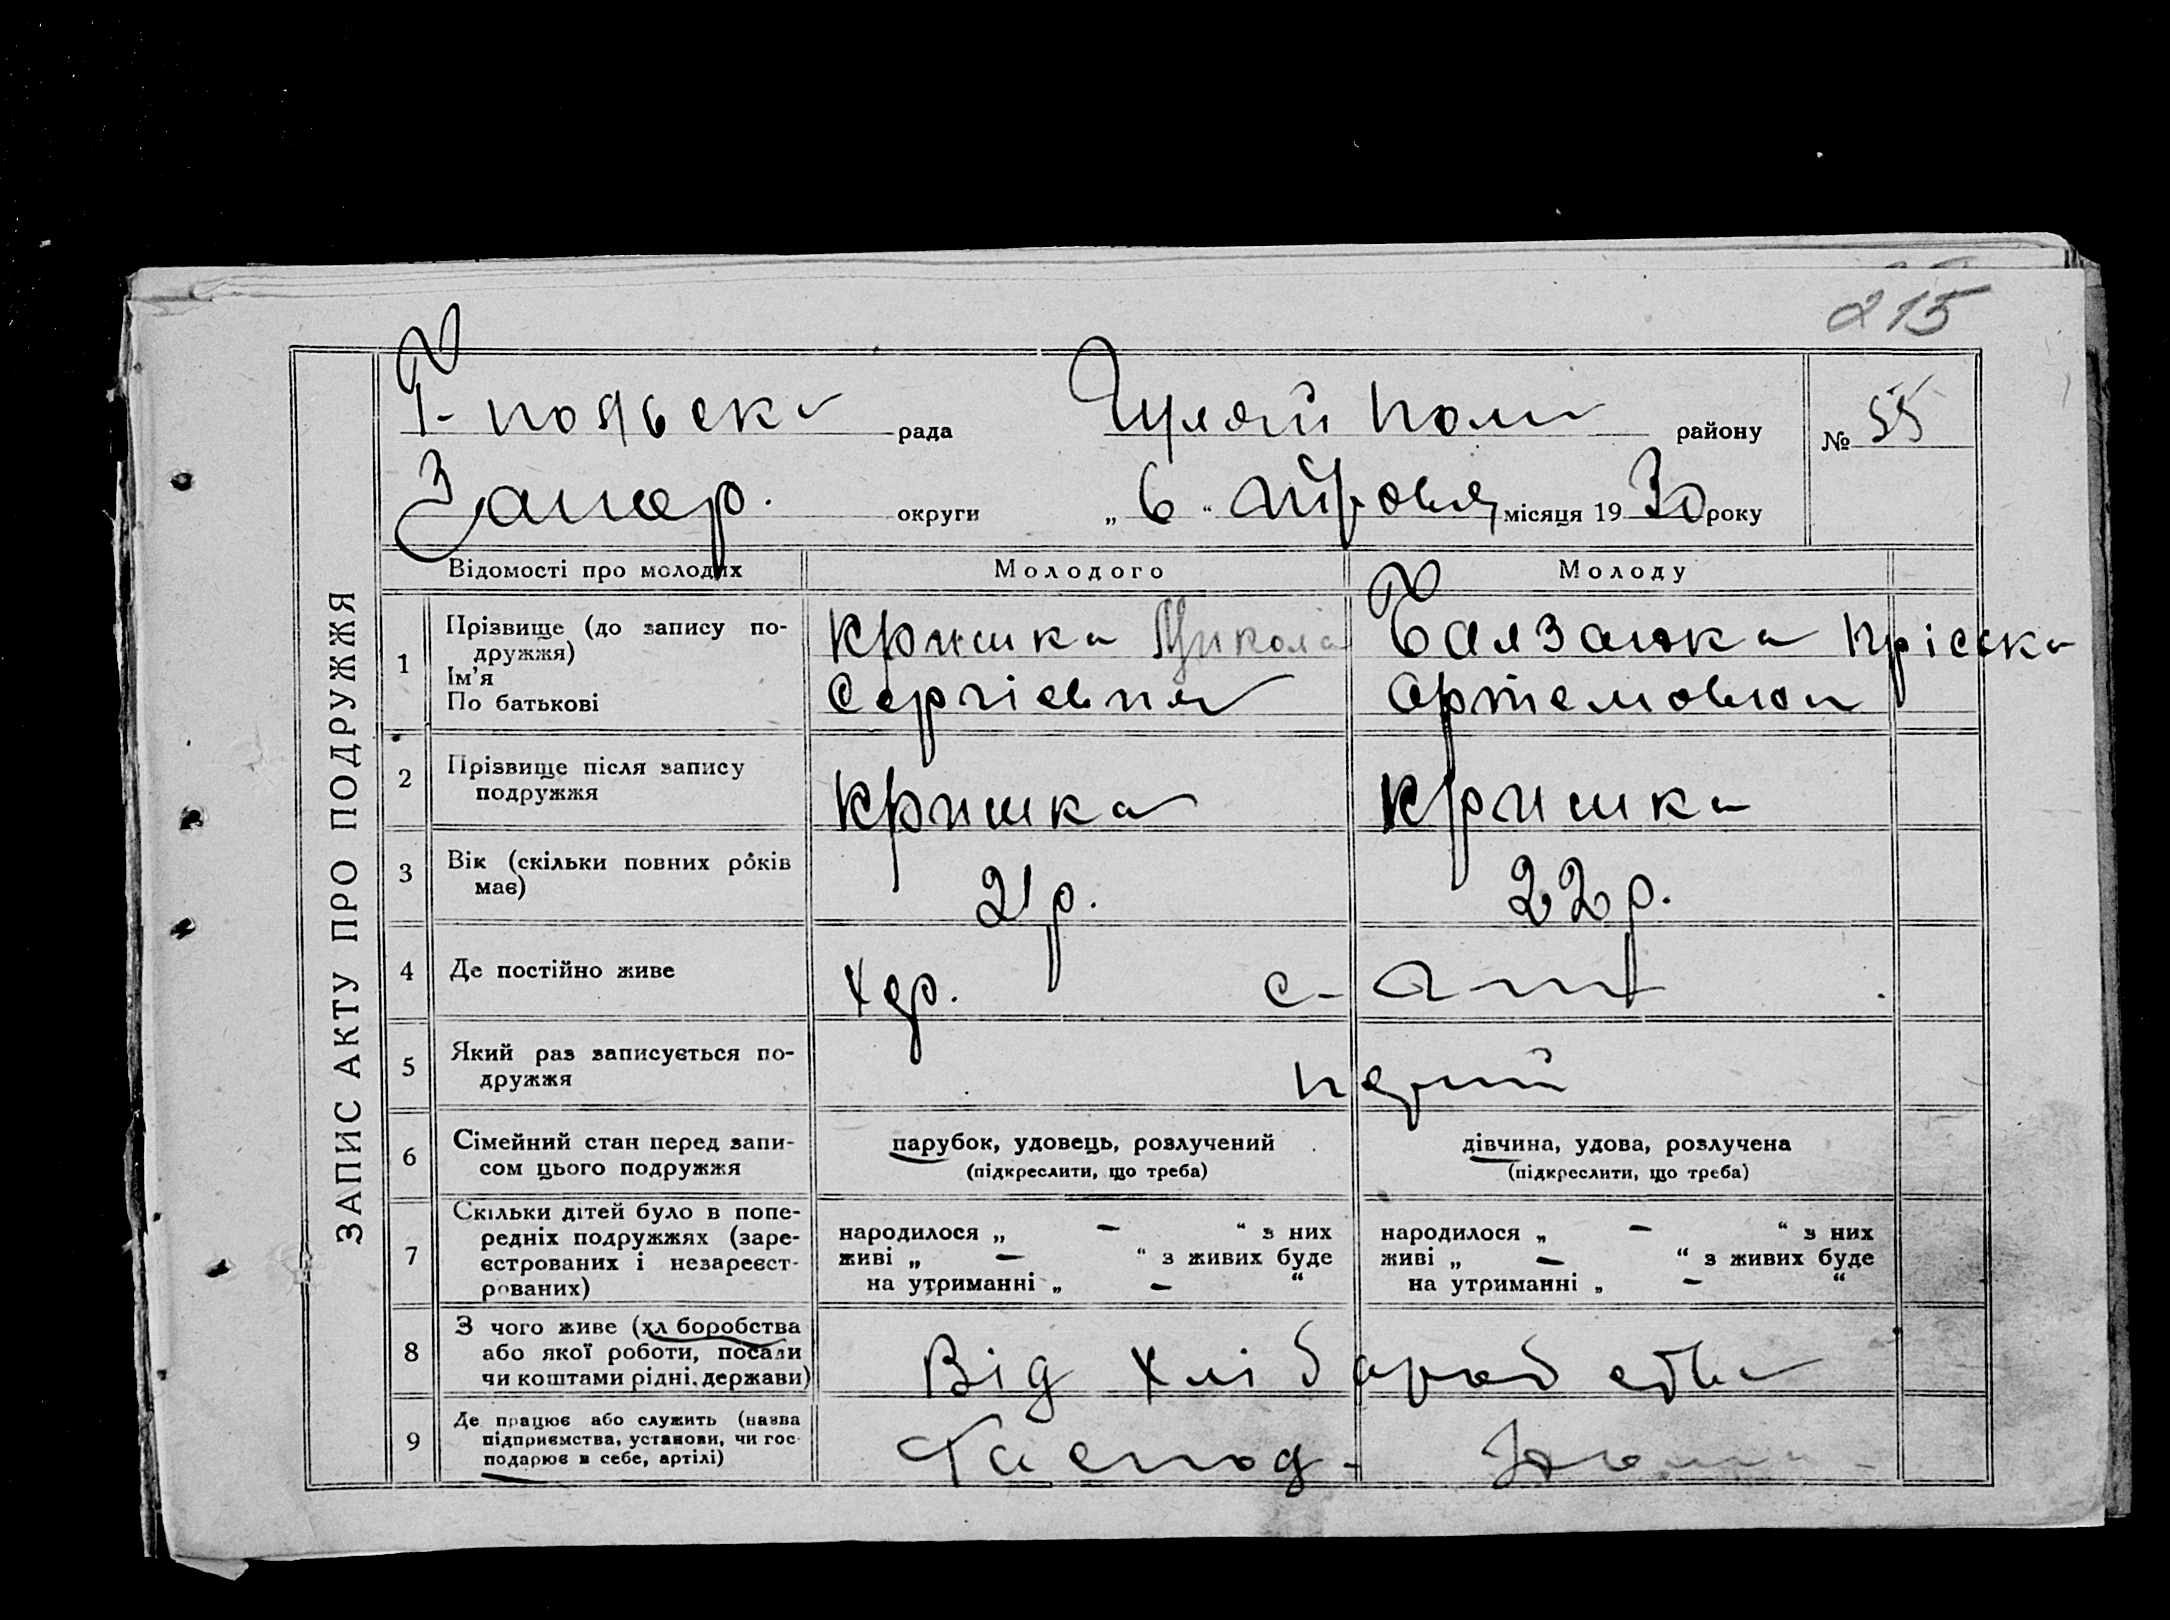 215
Г-польска рада Гуляй Поли району № 55
Запор. округи „ 6 “ місяця 1930 року
ЗАПИС АКТУ ПРО ПОДРУЖЖЯ
Відомості про молодих Молодого Молоду
1 Прізвище (до запису по-
дружжя)
Ім'я
По батькові
Кришка Микола
Сергіевич
Прiська
Артемовна
2 Прізвище після запису
подружжя
Кришка Кришка
3 Вік (скільки повних років
має)
21 р. 22 р.
4 Де постійно живе
5 Який раз записується по-
дружжя
6 Сімейний стан перед запи-
сом цього подружжя
парубок, удовець, розлучений
(підкреслити, що треба)
дівчина, удова, розлучена
(підкреслити, що треба)
7 Скільки дітей було в попе-
редніх подружжях (заре-
єстрованих і незареєст-
рованих)
народилося „ — “ з них
живі „ — “ з живих буде
на утриманні „ — “
народилося „ — “ з них
живі „ — “ з живих буде
на утриманні „ — “
8 З чого живе (хл боробства
або якої роботи, посади
чи коштами рідні, держави)
Від хлiборобства
9 Де працює або служить (назва
підприємства, установи, чи гос-
подарює в себе, артілі)